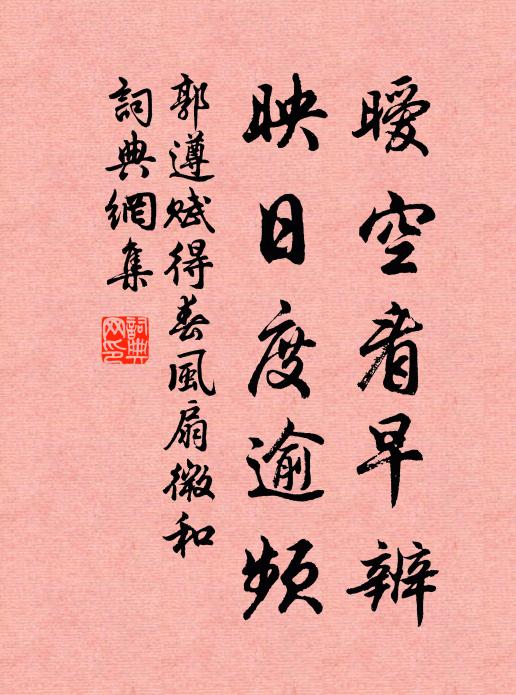 曖空看早辨
映日度逾頻
郭遵賦得春風扇微和
詞典網集
詞典網印